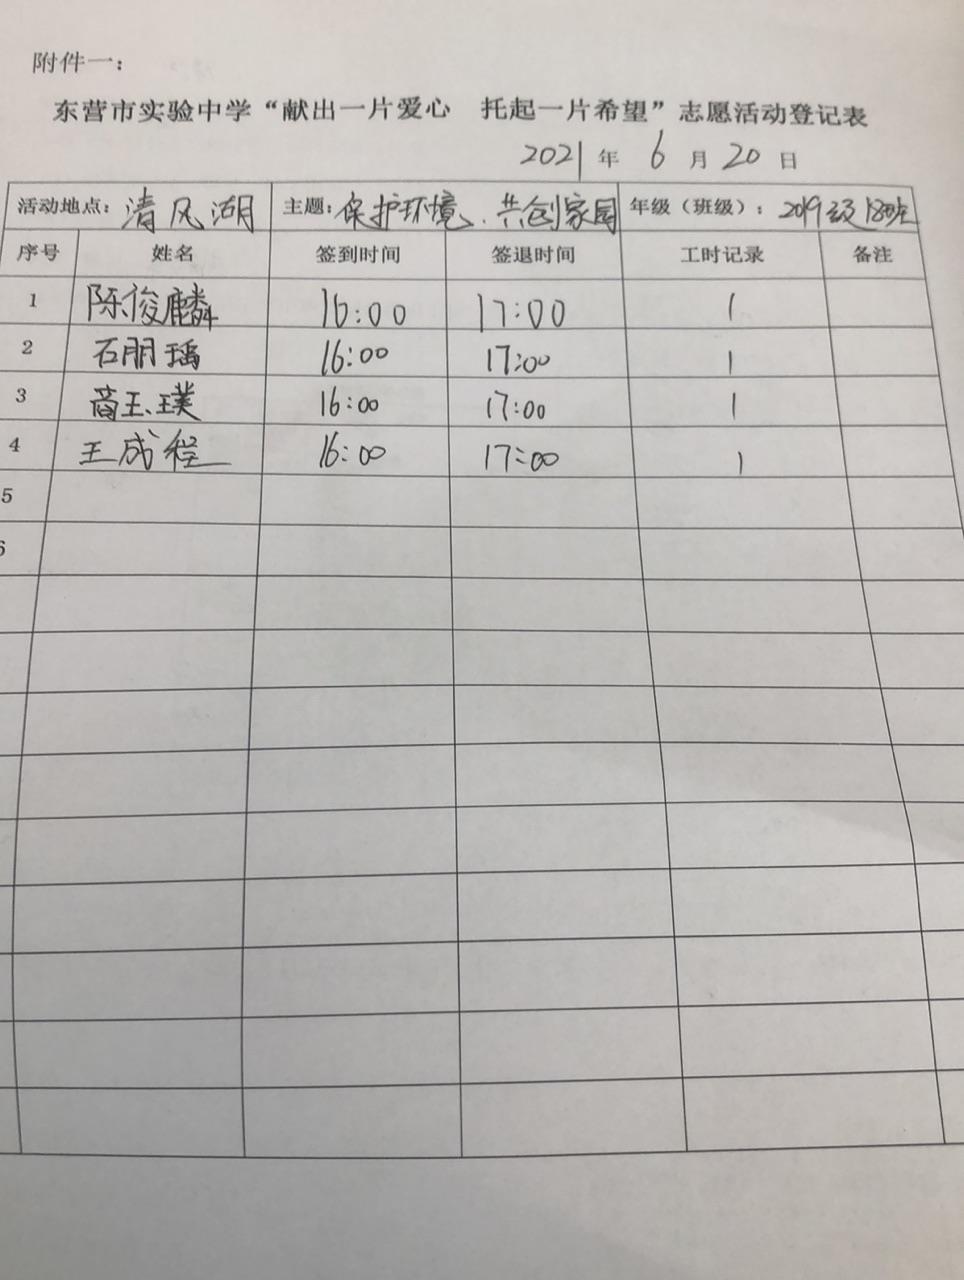 附件一：
东营市实验中学“献出一片爱心 托起一片希望”志愿活动登记表
2021 年 6 月 20 日
活动地点：清风湖 主题：保护环境、共创家园 年级（班级）：2019级18班
序号 姓名 签到时间 签退时间 工时记录 备注
1 陈俊麟 16:00 17:00 1
2 石朋瑀 16:00 17:00 1
3 商玉璞 16:00 17:00 1
4 王成程 16:00 17:00 1
5
6